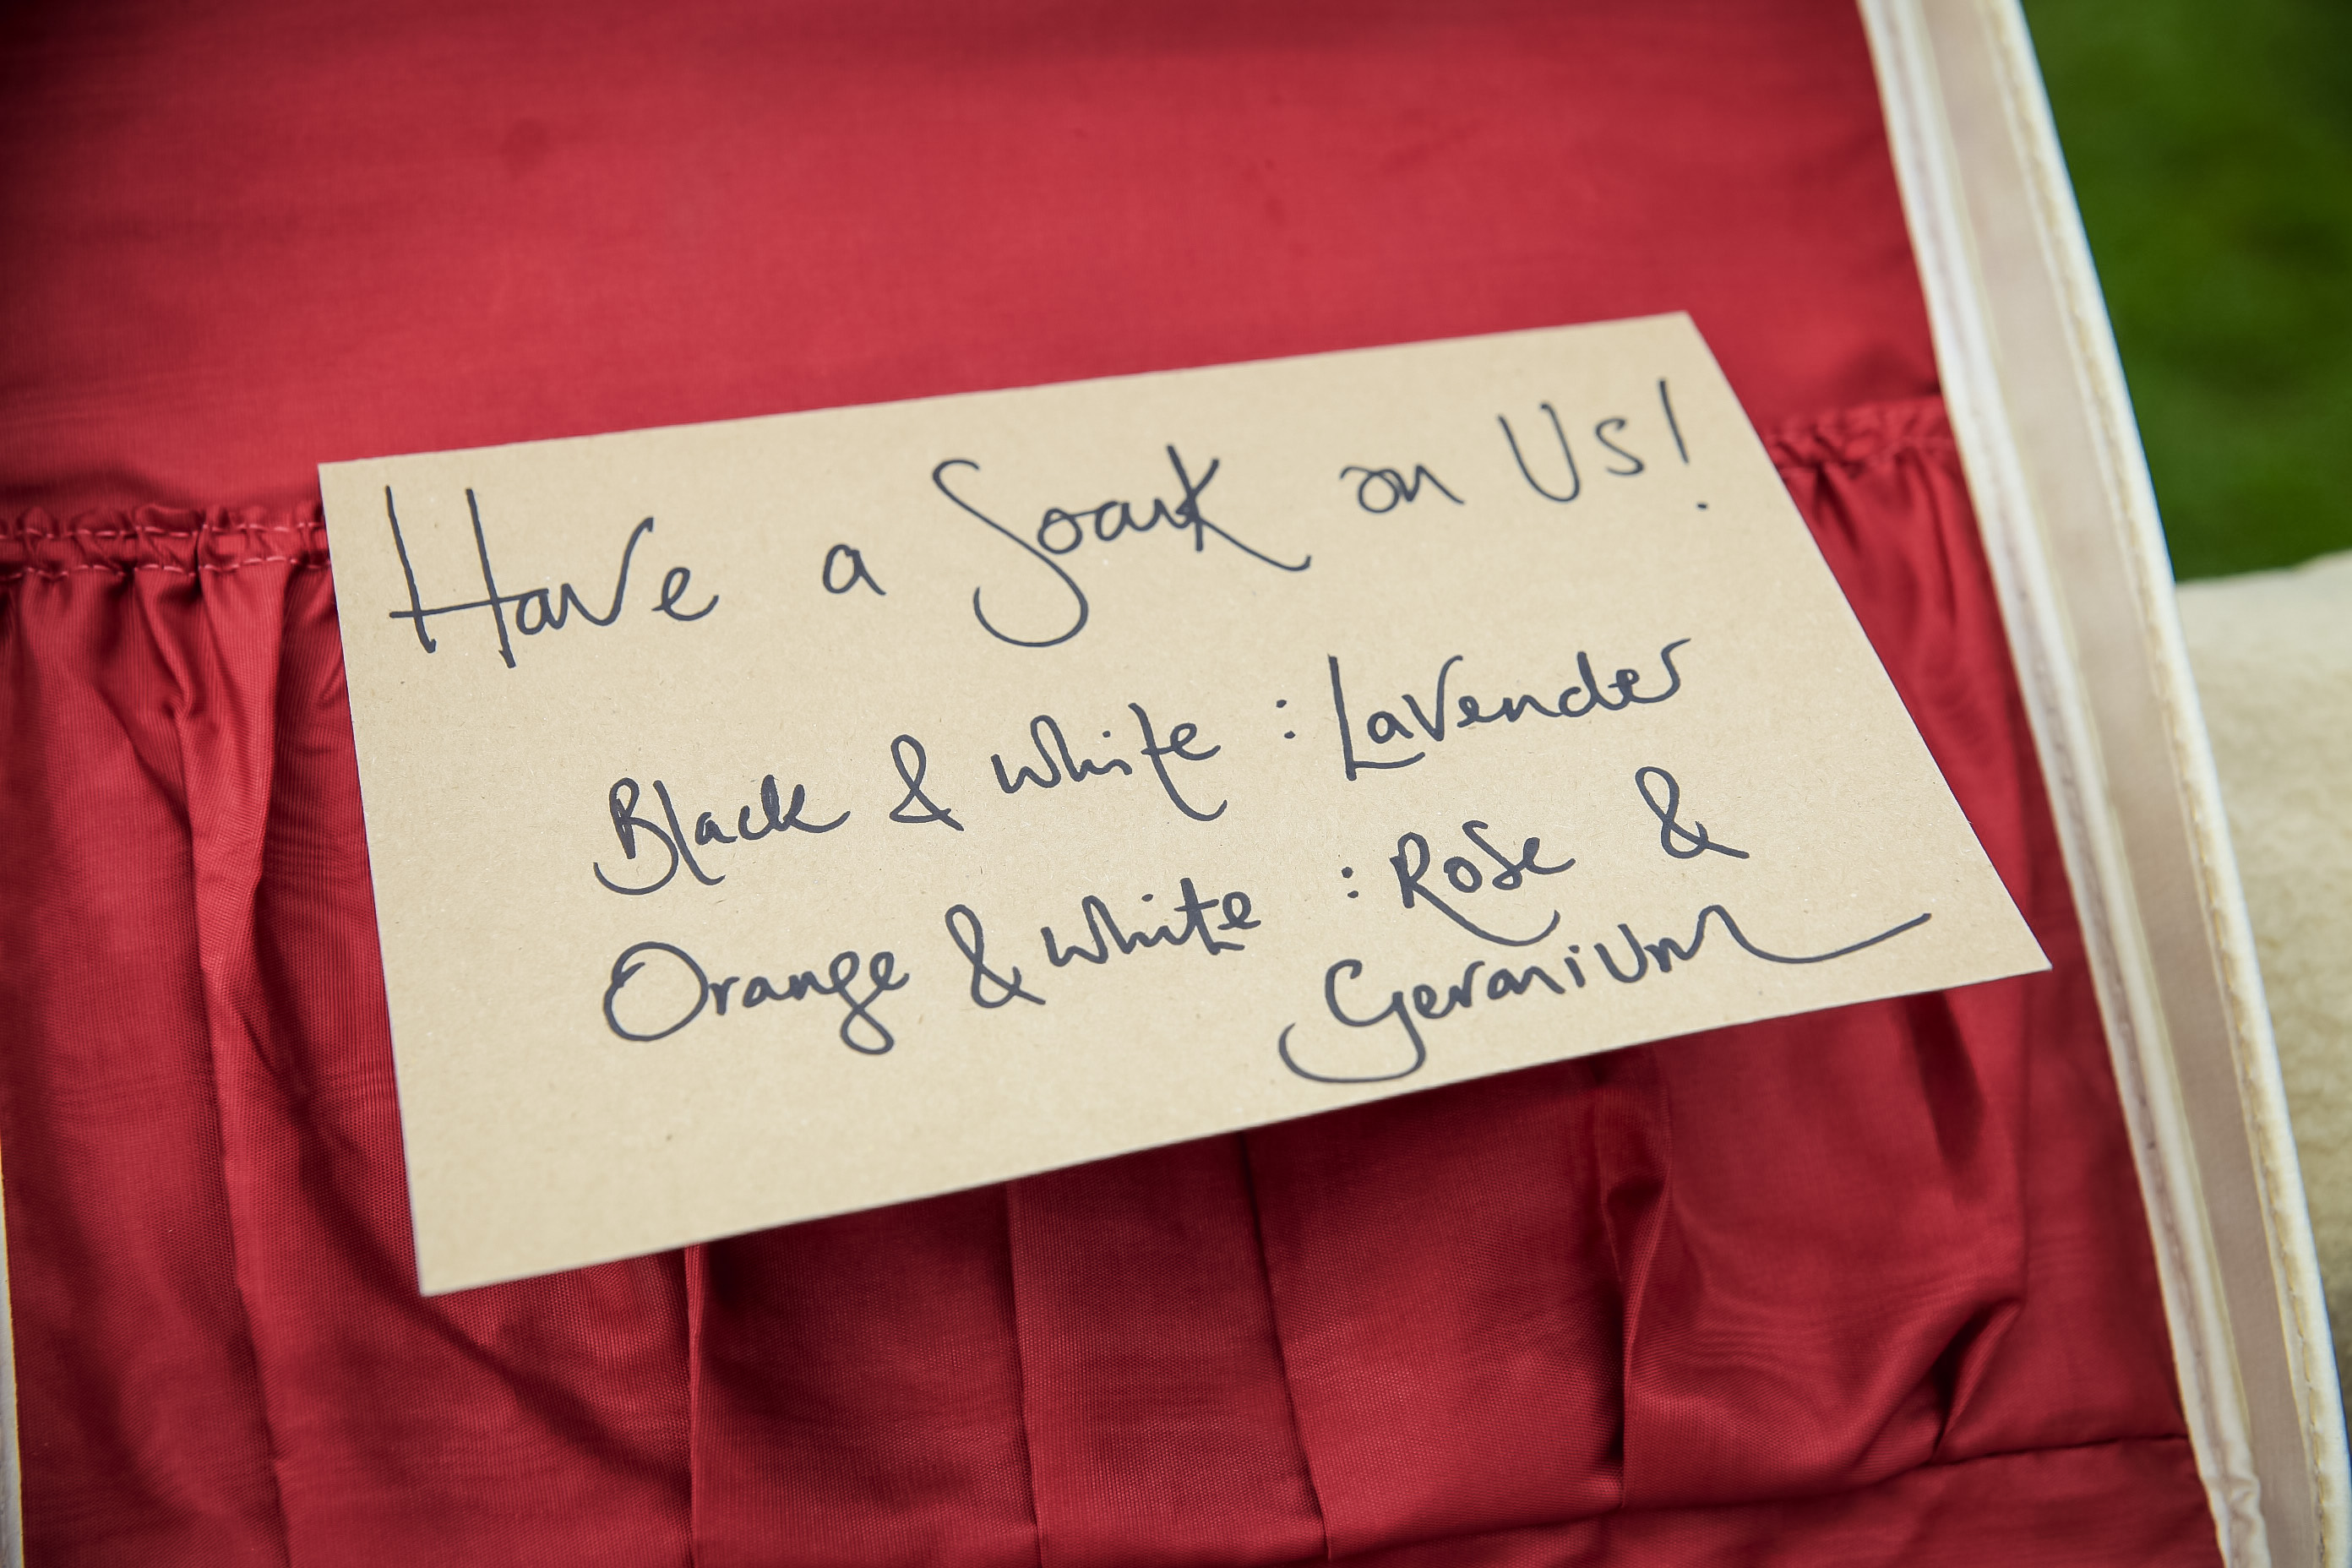 Have a Soak on Us!
Black & White : Lavender
Orange & White : Rose &
Geranium